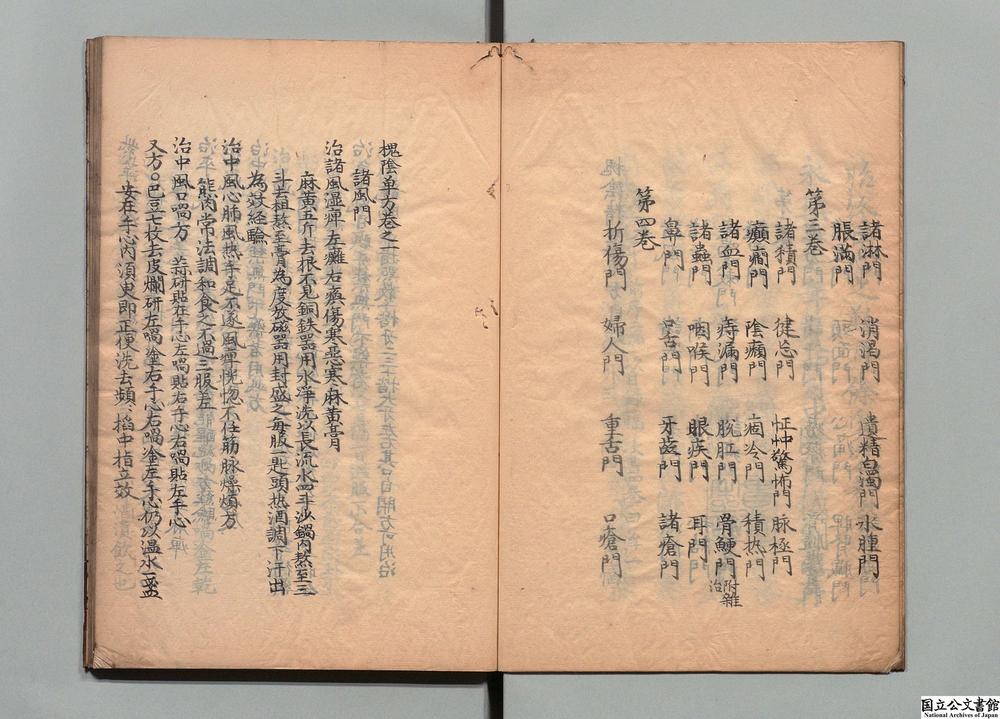 諸淋門 消渴門 遺精白濁門 水腫門
脹滿門
第三巻
諸積門 健忘門 怔忡驚怖門 脉極門
癲癎門 陰癩門 痼冷門 積热門
諸血門 痔漏門 脫肛門 骨鯁門 附雜治
諸蟲門 咽喉門 眼疾門 耳門
鼻門 口舌門 牙齒門 諸瘡門
第四巻
折傷門 婦人門 重舌門 口瘡門
槐陰單方卷之一
諸風門
治諸風湿痺左癱右瘓傷寒惡寒麻黄膏
麻黄五斤去根不見銅鉄器用水淨洗以長流水四斗沙鍋內熬至三
斗去柤熬至膏為度放磁器用封盛之每服一匙頭热酒調下汗出
為效経驗
治中風心肺風热手足不遂風痺恍惚不任筋脉燥煩方
熊肉常法調和食之不過三服差
治中風口喎方 蒜研貼在手心左喎貼右手心右喎貼左手心
又方○巴豆七枚去皮爛研左喎塗右手心右喎塗左手心仍以温水一盃
安在手心內湏臾即正便洗去頻ミ搯中指立效
国立公文書館
National Archives of Japan